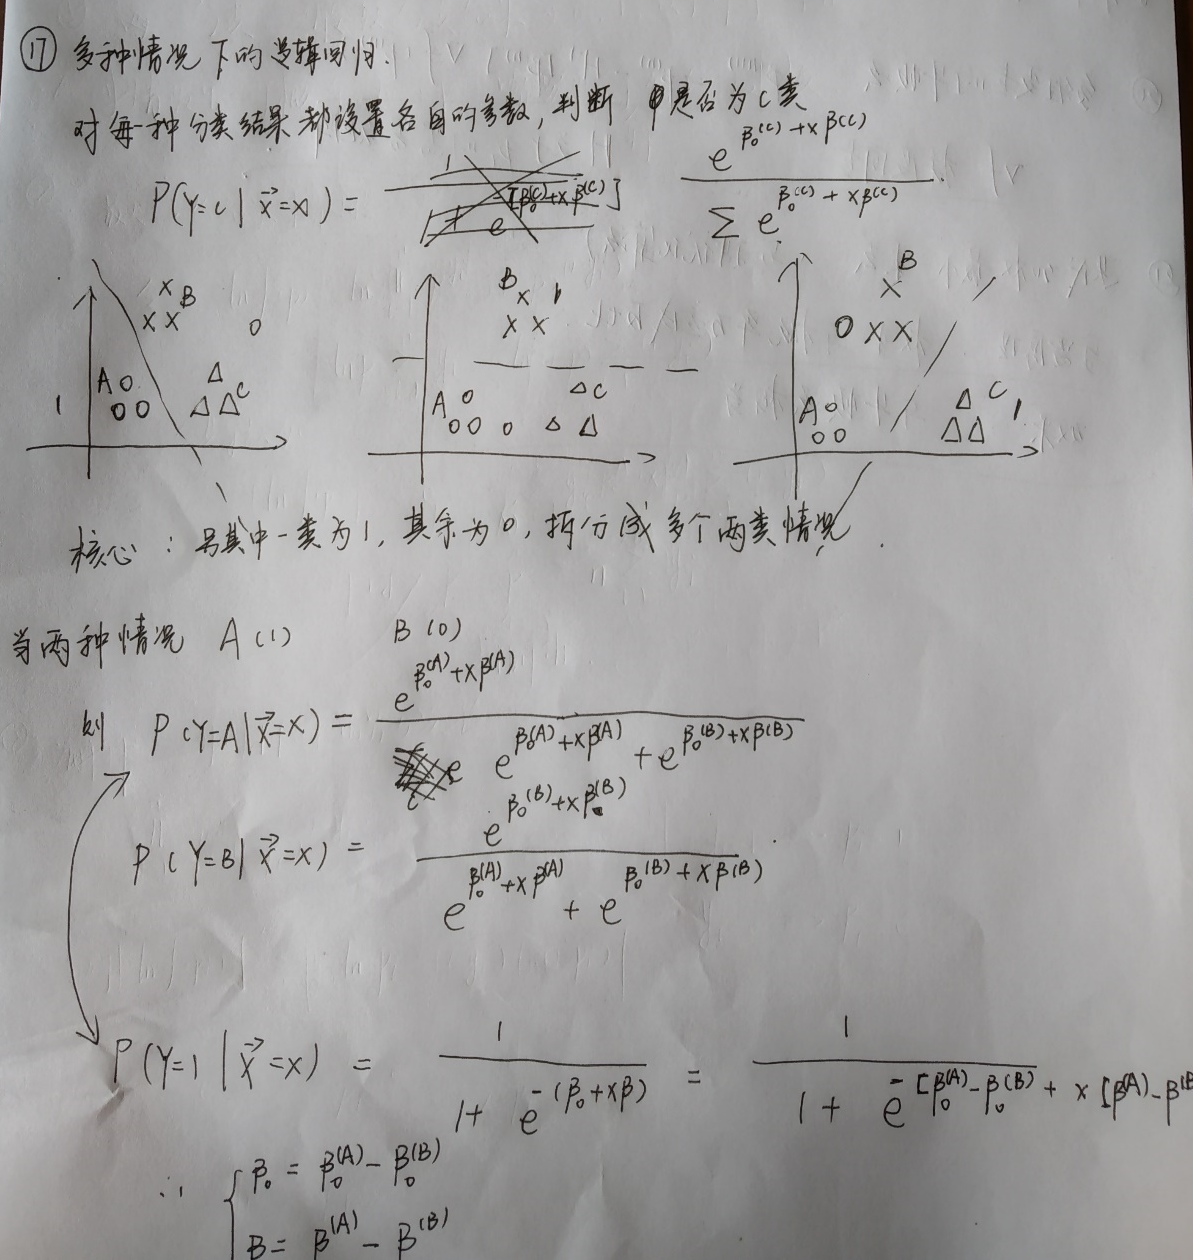 ⑰ 多种情况下的逻辑回归.
对每一种分类结果都设置各自的参数,判断 甲是否为C类
P(Y=c | x⃗=x) = e^(β₀^(c)+xβ^(c)) / Σ e^(β₀^(c)+xβ^(c))
B B B
A C A C A C
1 1 1
核心:另其中一类为1,其余为0,拆分成多个两类情况.
当两种情况 A(1) B(0)
则 P(Y=A|x⃗=x) = e^(β₀^(A)+xβ^(A)) / e^(β₀^(A)+xβ^(A)) + e^(β₀^(B)+xβ^(B))
P(Y=B|x⃗=x) = e^(β₀^(B)+xβ^(B)) / e^(β₀^(A)+xβ^(A)) + e^(β₀^(B)+xβ^(B))
P(Y=1 | x⃗=x) = 1 / 1+e^-(β₀+xβ) = 1 / 1+e^-[β₀^(A)-β₀^(B)+x[β^(A)-β^(B
∴ { β₀ = β₀^(A) - β₀^(B)
β = β^(A) - β^(B)